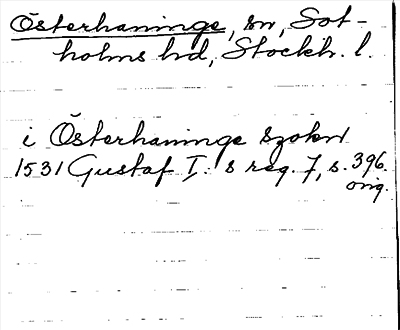 Österhaninge, sn, Sot-
holms hd, Stockh. l.
i Österhaninge szokn
1531 Gustaf I:s reg. 7, s. 396.
orig.